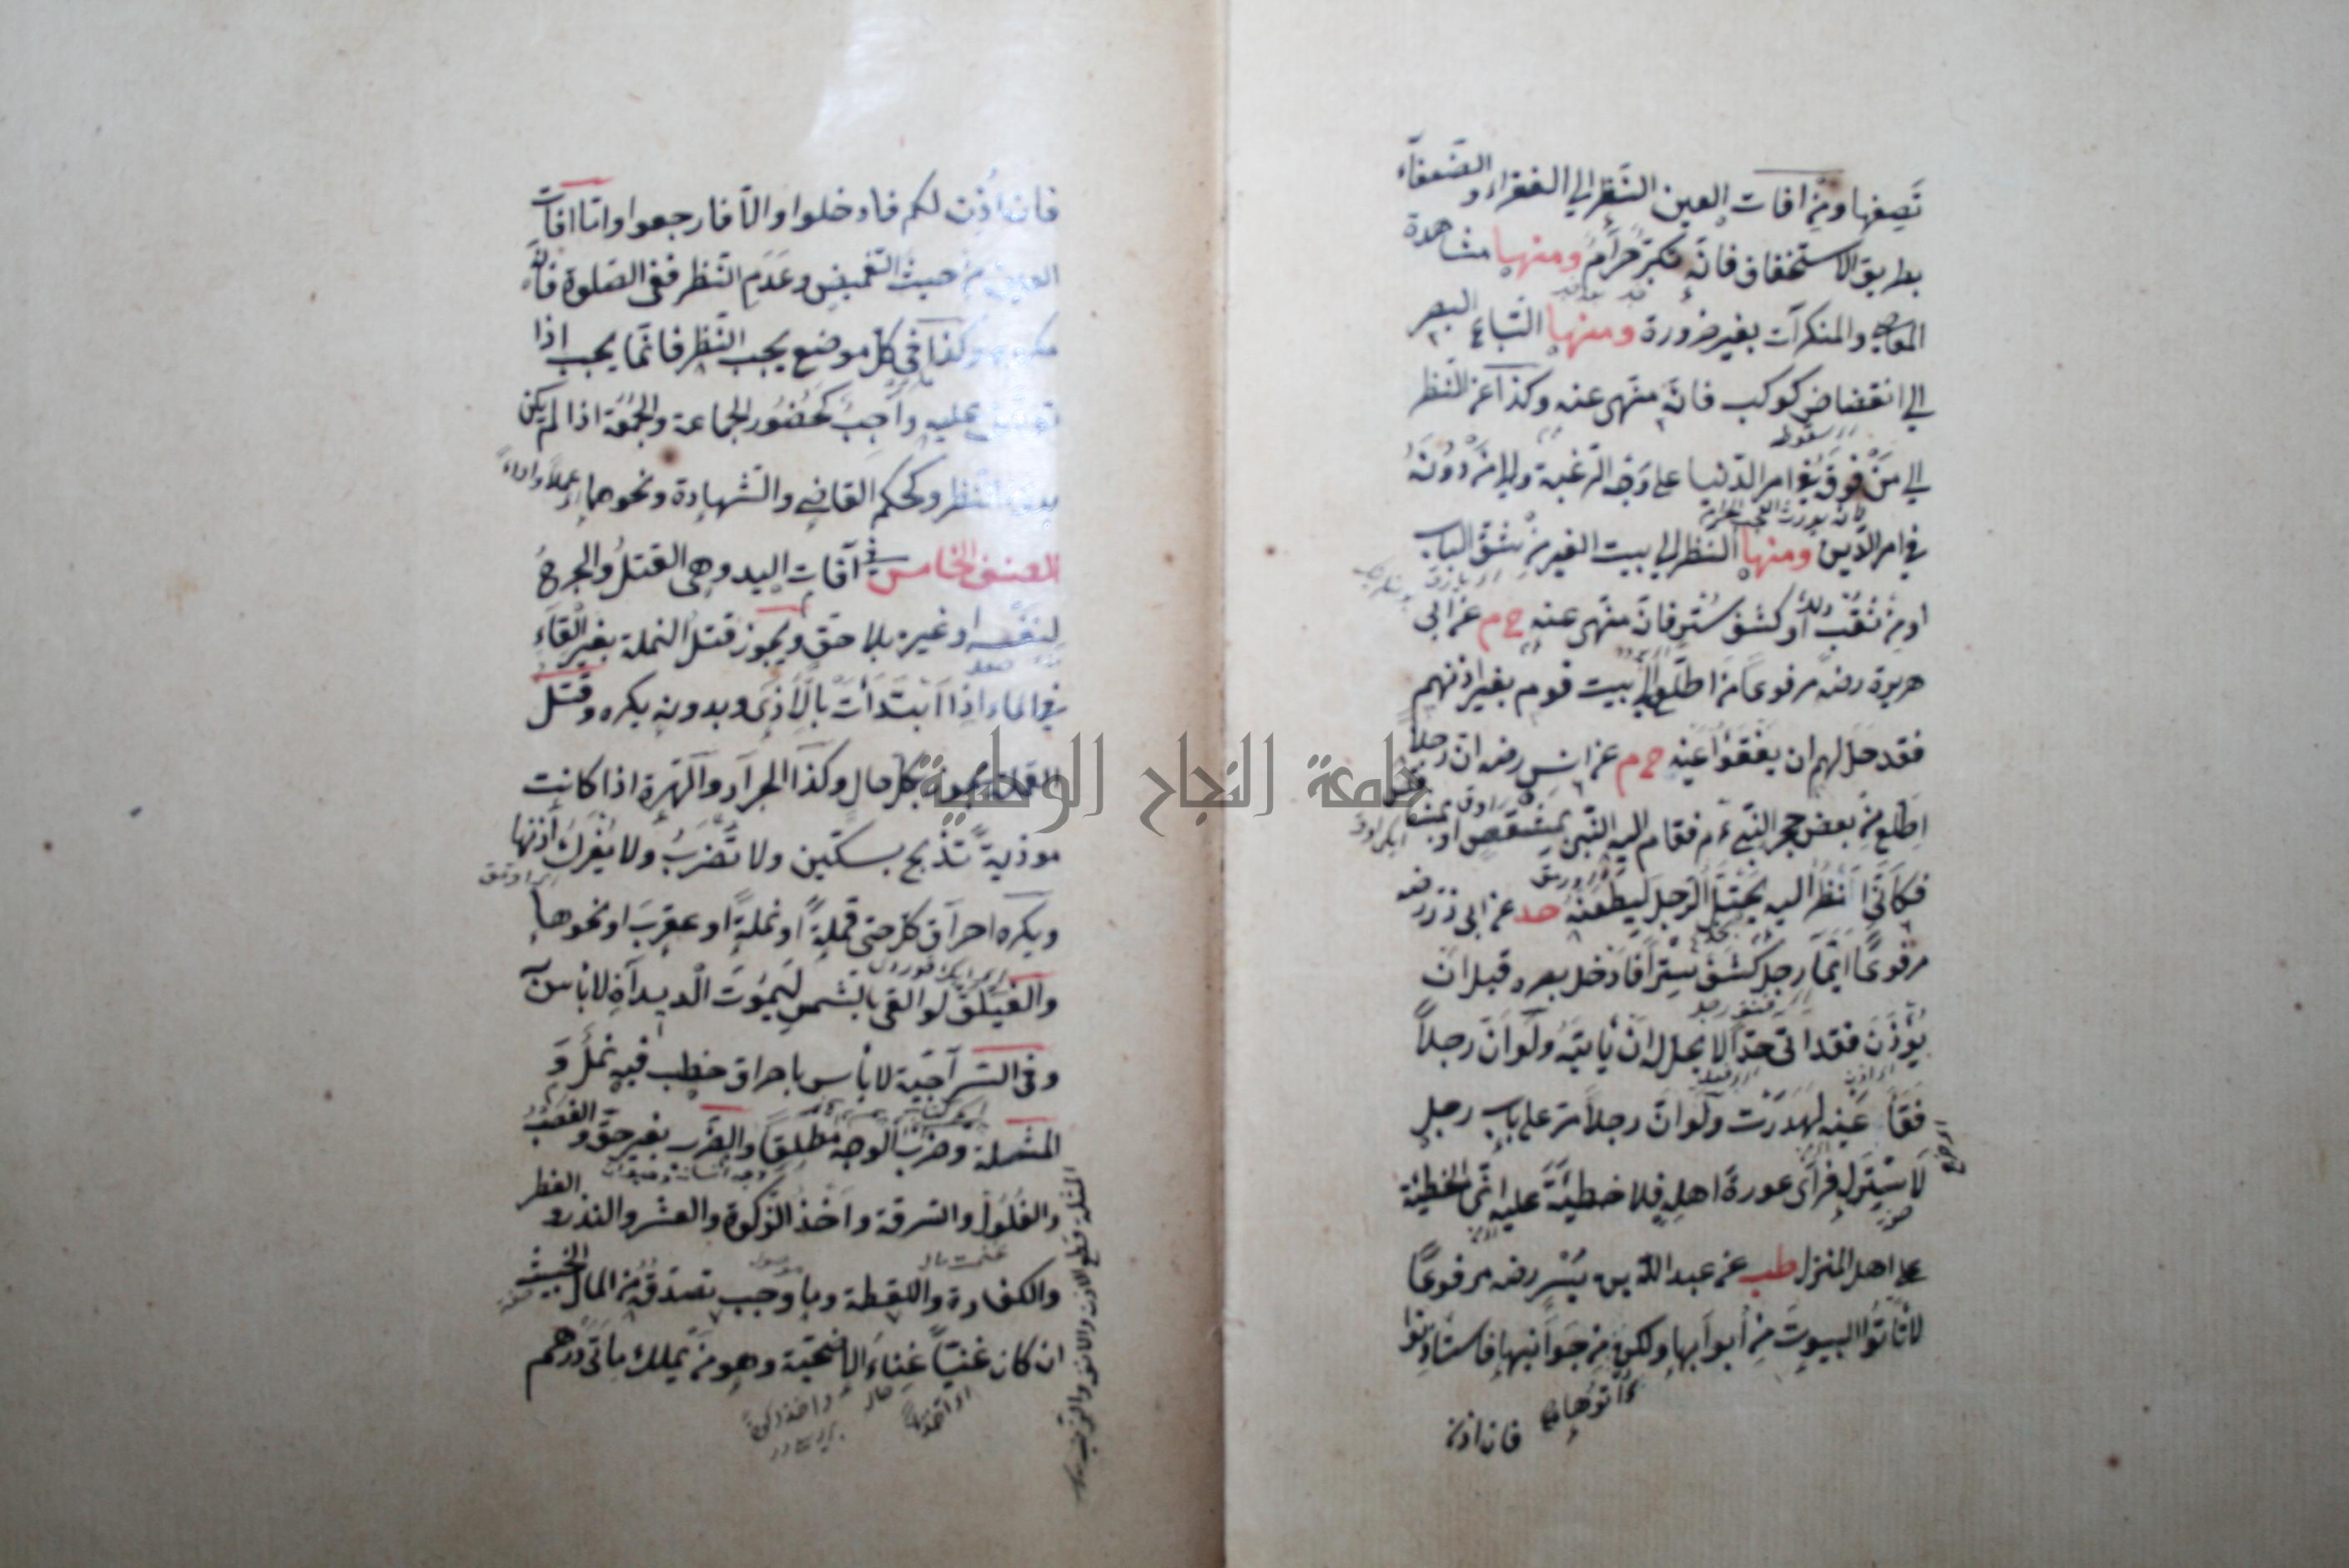 نصفها ومن افات العين النظر الي الفقراء والضعفاء
بطريق الاستخفاف فانه تكبر حرام ومنها مشاهدة
المعاصي والمنكرات بغير ضرورة ومنها اتباع البصر
الي انقضاض كوكب فانه منهى عنه وكذا عن النظر
الي من فوقه في امر الدنيا على وجه الرغبة والي من دونه
في امر الدين ومنها النظر الي بيت الغير من شق الباب
او من ثقب او كشف ستر فانه منهى عنه خ م عن ابى
هريرة رضه مرفوعا من اطلع الى بيت قوم بغير اذنهم
فقد حل لهم ان يفقؤا عينه خ م عن انس رضه ان رجلا
اطلع من بعض حجر النبي ءم فقام اليه النبى بمشقص او بمشاقص
فكانى انظر اليه يختل الرجل ليطعنه حد عن ابى ذر رضه
مرفوعا ايما رجل كشف سترا فادخل بصره قبل ان
يؤذن فقد اتى حدا لا يحل له ان ياتيه ولو ان رجلا
فقأ عينه لهدرت ولو ان رجلا مر على باب رجل
لا ستر له فرأى عورة اهله فلا خطيئة عليه انما الخطيئة
على اهل المنزل طب عن عبد الله بن يسر رضه مرفوعا
لا تاتوا البيوت من ابوابها ولكن من جوانبها فاستاذنوا
فان اذن
فان اذن لكم فادخلوا والا فارجعوا واما افات
العين من حيث التغميض وعدم النظر ففى الصلوة فانه
مكروه وكذا فى كل موضع يجب النظر فانما يجب اذا
عليه واجب كحضور الجماعة والجمعة اذا لم يكن
بدون النظر وكحكم القاضي والشهادة ونحوهما
الصنف الخامس في آفات اليد وهى القتل والجرح
لنفسه او غيره بلا حق ويجوز قتل النملة بغير القاء
في الماء اذا ابتدأت بالاذى وبدونه يكره وقتل
القملة يجوز بكل حال وكذا الجراد والهرة اذا كانت
موذية تذبح بسكين ولا تضرب ولا يفرك اذنها
ويكره احراق كل حى قملة او نملة او عقرب او نحوها
والفيلق لو القى بالشمس ليموت الديدان لا بأس به
وفى السراجية لا بأس باحراق حطب فيه نمل و
المثلة وضرب الوجه مطلقا والضرب بغير حق والغصب
والغلول والسرقة واخذ الزكوة والعشر والنذر والفطر
والكفارة واللقطة وبا وجب تصدقه من المال الخبيث
ان كان غنيا غناء الاضحية وهو من يملك مأتى درهم
جامعة النجاح الوطنية